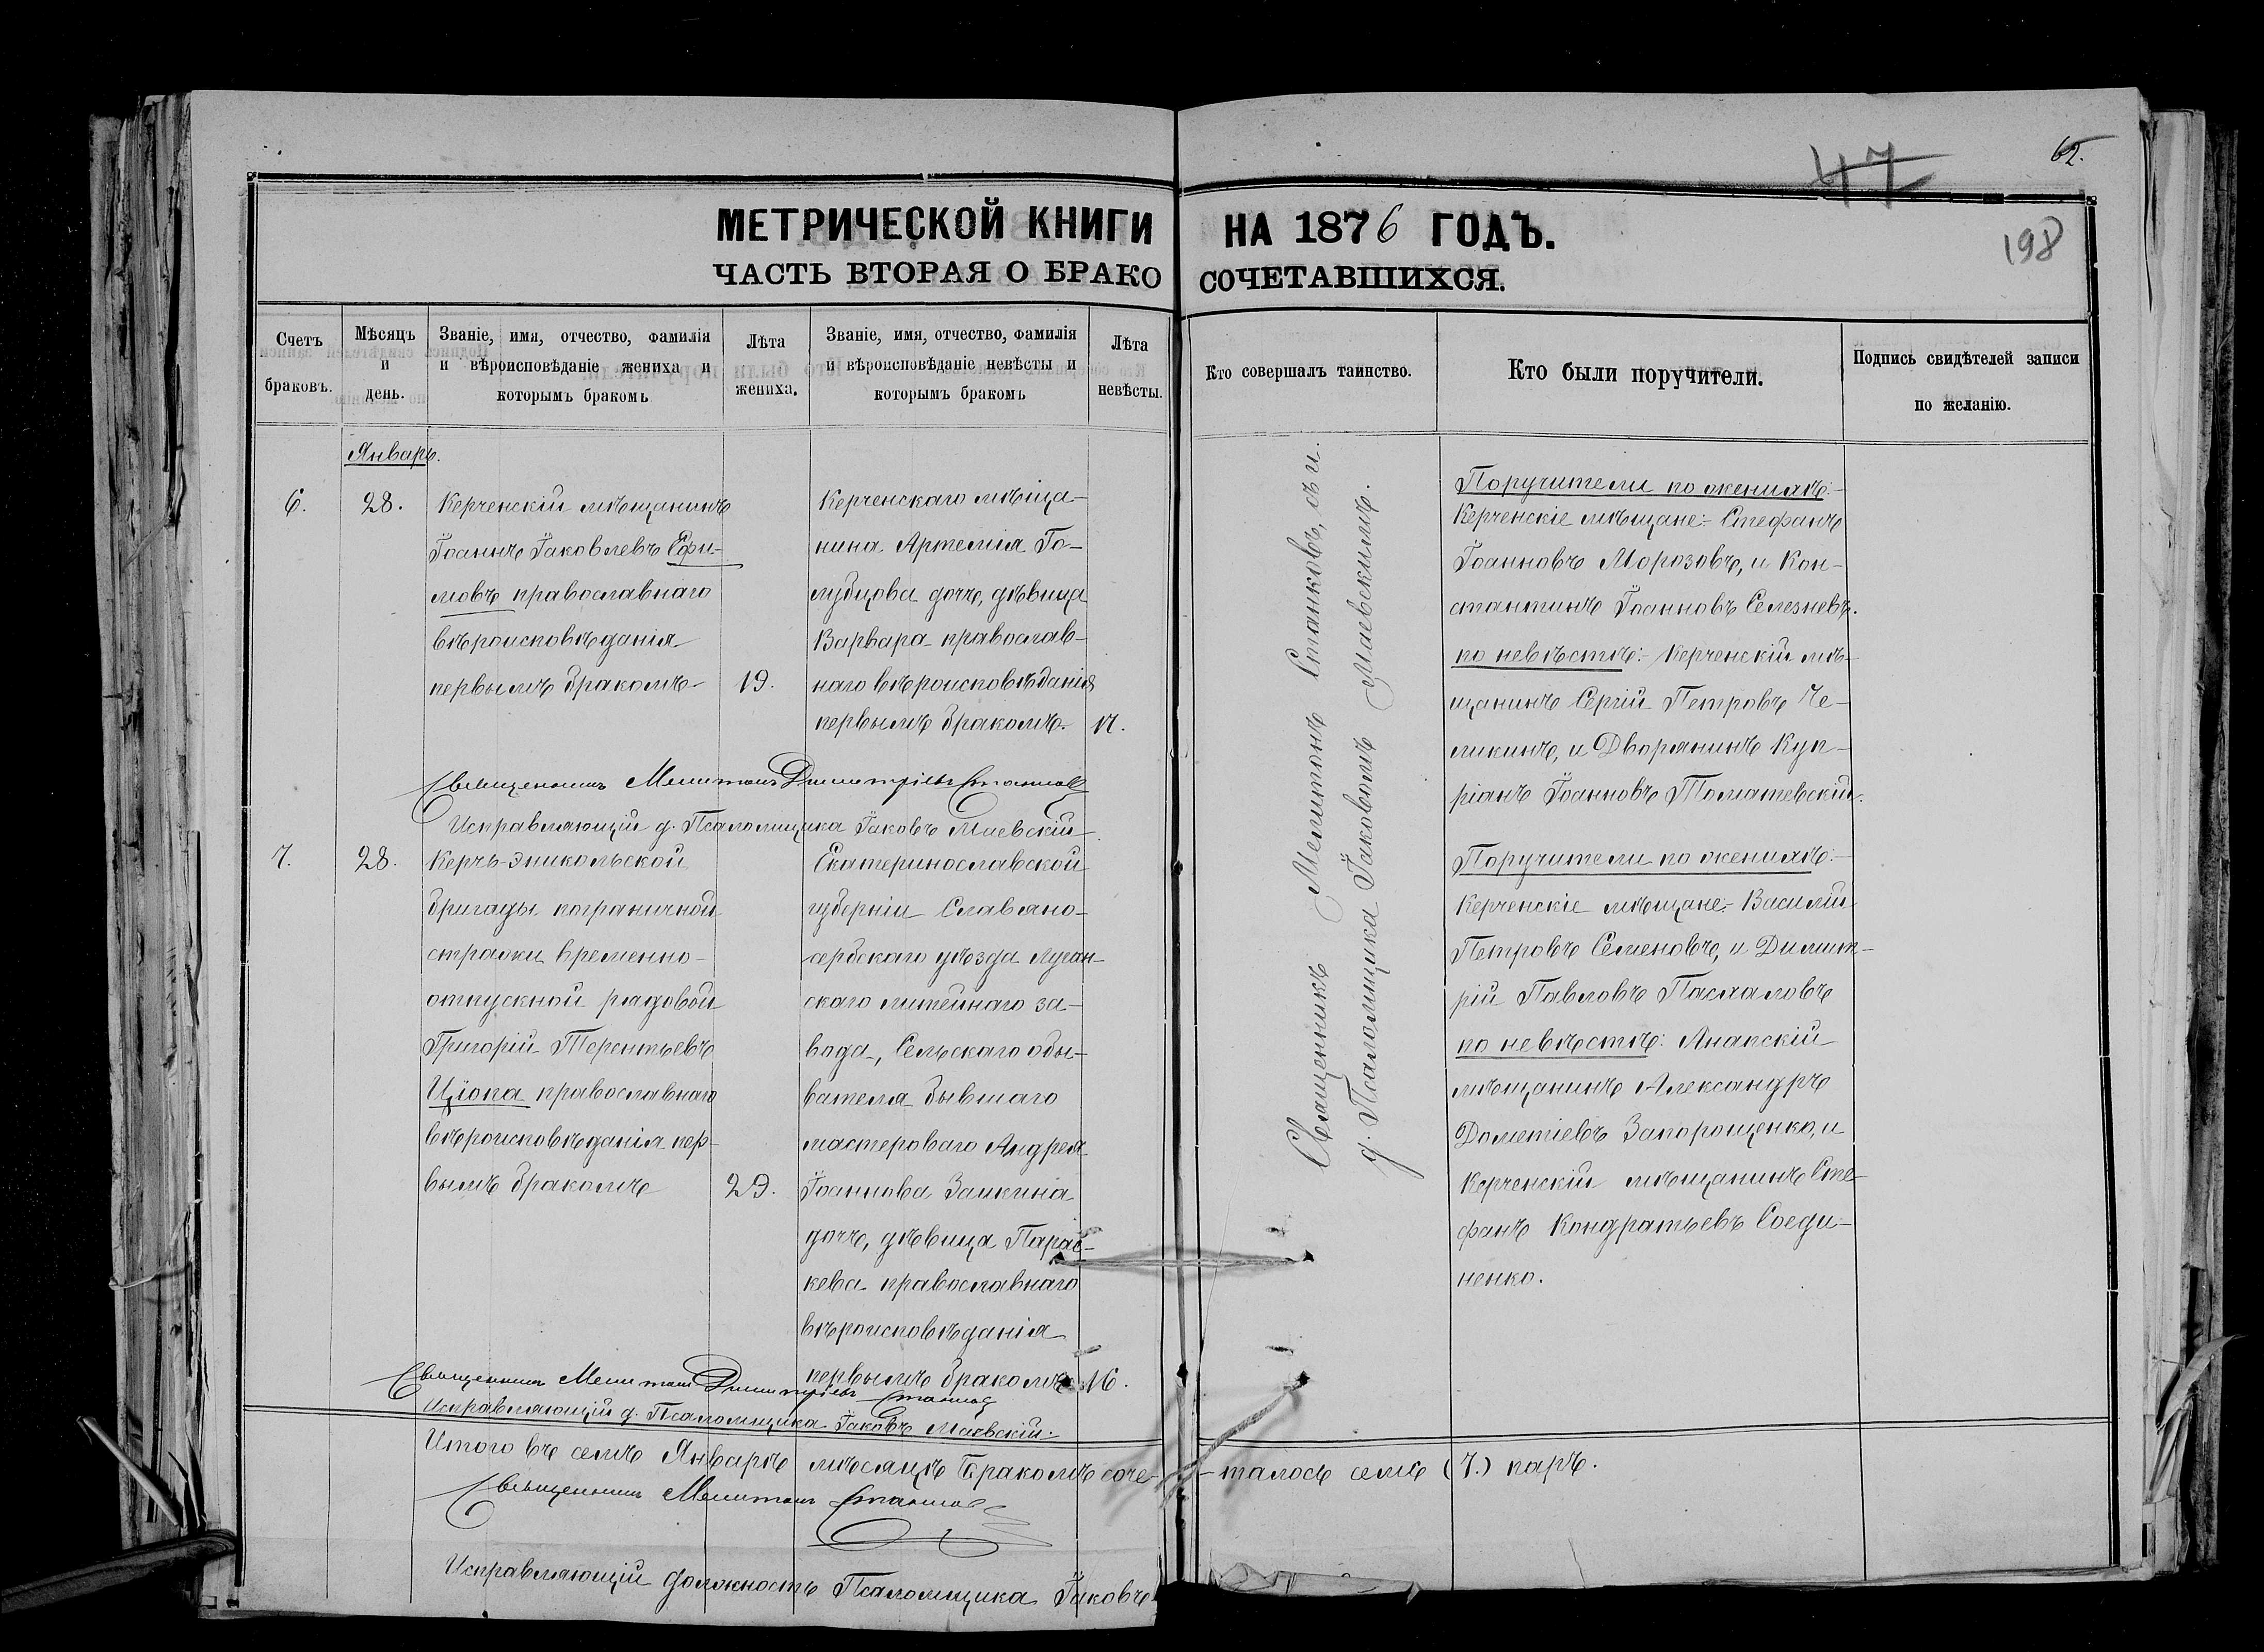 47
62.
198
МЕТРИЧЕСКОЙ КНИГИ НА 1876 ГОДЪ.
ЧАСТЬ ВТОРАЯ О БРАКОСОЧЕТАВШИХСЯ.
Счетъ браковъ.
Мѣсяцъ и день.
Званіе, имя, отчество, фамилія
и вѣроисповѣданіе жениха и
которымъ бракомъ
Лѣта жениха.
Званіе, имя, отчество, фамилія
и вѣроисповѣданіе невѣсты и
которымъ бракомъ
Лѣта невѣсты.
Кто совершалъ таинство.
Кто были поручители.
Подпись свидѣтелей записи
по желанію.
Январь.
6.
28.
Керченскій мѣщанинъ
Іоаннъ Іаковлевъ Ефи-
мовъ православнаго
вѣроисповѣданія
первымъ бракомъ
19.
Керченскаго мѣща-
нина Артемія Го-
лубцова дочь, дѣвица
Варвара православ-
наго вѣроисповѣданія
первымъ бракомъ.
17.
Священникъ Мелитонъ Станковъ, съ и.
д. Псаломщика Іаковомъ Маевскимъ.
Поручители по женихѣ:-
Керченскіе мѣщане:- Стефанъ
Іоанновъ Морозовъ, и Кон-
стантинъ Іоанновъ Селезневъ.
по невѣстѣ:- Керченскій мѣ-
щанинъ Сергій Петровъ Че-
ликинъ, и Дворянинъ Куп-
ріанъ Іоанновъ Томашевскій.
Священникъ Мелитонъ Димитріевъ Станковъ
Исправляющій д. Псаломщика Іаковъ Маевскій
7.
28.
Керчь-Эникольской
бригады пограничной
стражи временно-
отпускной рядовой
Григорій Терентьевъ
Цюпа православнаго
вѣроисповѣданія пер-
вымъ бракомъ
29.
Екатеринославской
губерніи Славяно-
сербскаго уѣзда Луган-
скаго литейнаго за-
вода, Сельскаго обы-
вателя бывшаго
мастероваго Андрея
Іоаннова Заикина
дочь, дѣвица Парас-
кева православнаго
вѣроисповѣданія
первымъ бракомъ
16.
Поручители по женихѣ:-
Керченскіе мѣщане:- Василій
Петровъ Семеновъ, и Димит-
рій Павловъ Пасхаловъ
по невѣстѣ: Анапскій
мѣщанинъ Александръ
Дометіевъ Запорощенко, и
Керченскій мѣщанинъ Сте-
фанъ Кондратьевъ Соеди-
ненко.
Священникъ Мелитонъ Димитріевъ Станковъ
Исправляющій д. Псаломщика Іаковъ Маевскій.
Итого въ семъ Январѣ мѣсяцѣ бракомъ соче-
-талось семь (7.) паръ.
Священникъ Мелитонъ Станковъ
Исправляющій должность Псаломщика Іаковъ